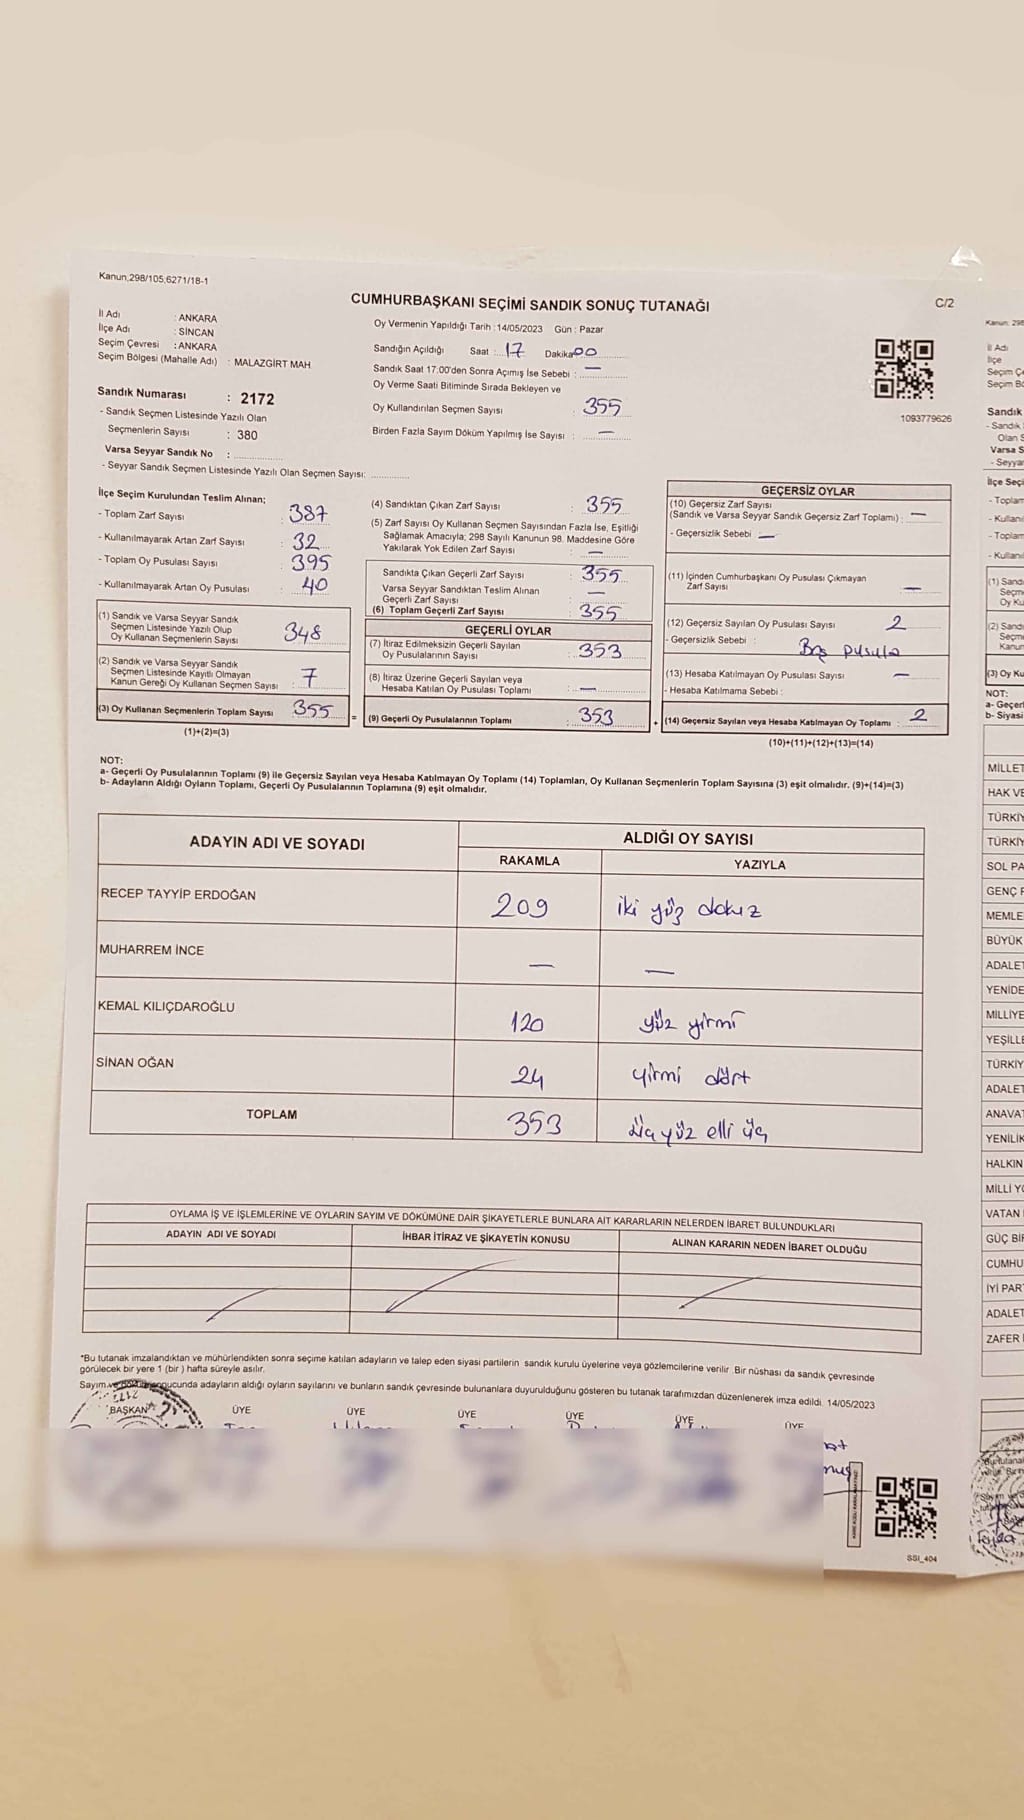 Kanun,298/105,6271/18-1
CUMHURBAŞKANI SEÇİMİ SANDIK SONUÇ TUTANAĞI
C/2
İl Adı : ANKARA
İlçe Adı : SİNCAN
Seçim Çevresi : ANKARA
Seçim Bölgesi (Mahalle Adı) : MALAZGİRT MAH
Sandık Numarası : 2172
- Sandık Seçmen Listesinde Yazılı Olan
Seçmenlerin Sayısı : 380
Varsa Seyyar Sandık No :
- Seyyar Sandık Seçmen Listesinde Yazılı Olan Seçmen Sayısı:
Oy Vermenin Yapıldığı Tarih :14/05/2023 Gün : Pazar
Sandığın Açıldığı Saat : 17 Dakika 00
Sandık Saat 17:00'den Sonra Açımış İse Sebebi : —
Oy Verme Saati Bitiminde Sırada Bekleyen ve
Oy Kullandırılan Seçmen Sayısı : 355
Birden Fazla Sayım Döküm Yapılmış İse Sayısı : —
1093779626
İlçe Seçim Kurulundan Teslim Alınan;
- Toplam Zarf Sayısı : 387
- Kullanılmayarak Artan Zarf Sayısı : 32
- Toplam Oy Pusulası Sayısı : 395
- Kullanılmayarak Artan Oy Pusulası : 40
(1) Sandık ve Varsa Seyyar Sandık
Seçmen Listesinde Yazılı Olup
Oy Kullanan Seçmenlerin Sayısı : 348
(2) Sandık ve Varsa Seyyar Sandık
Seçmen Listesinde Kayıtlı Olmayan
Kanun Gereği Oy Kullanan Seçmen Sayısı : 7
(3) Oy Kullanan Seçmenlerin Toplam Sayısı : 355
(1)+(2)=(3)
(4) Sandıktan Çıkan Zarf Sayısı : 355
(5) Zarf Sayısı Oy Kullanan Seçmen Sayısından Fazla İse, Eşitliği
Sağlamak Amacıyla; 298 Sayılı Kanunun 98. Maddesine Göre
Yakılarak Yok Edilen Zarf Sayısı : —
Sandıkta Çıkan Geçerli Zarf Sayısı : 355
Varsa Seyyar Sandıktan Teslim Alınan
Geçerli Zarf Sayısı : —
(6) Toplam Geçerli Zarf Sayısı : 355
GEÇERLİ OYLAR
(7) İtiraz Edilmeksizin Geçerli Sayılan
Oy Pusulalarının Sayısı : 353
(8) İtiraz Üzerine Geçerli Sayılan veya
Hesaba Katılan Oy Pusulası Toplamı : —
= (9) Geçerli Oy Pusulalarının Toplamı : 353
GEÇERSİZ OYLAR
(10) Geçersiz Zarf Sayısı
(Sandık ve Varsa Seyyar Sandık Geçersiz Zarf Toplamı) : —
- Geçersizlik Sebebi : —
(11) İçinden Cumhurbaşkanı Oy Pusulası Çıkmayan
Zarf Sayısı : —
(12) Geçersiz Sayılan Oy Pusulası Sayısı : 2
- Geçersizlik Sebebi : Boş pusula
(13) Hesaba Katılmayan Oy Pusulası Sayısı : —
- Hesaba Katılmama Sebebi :
+ (14) Geçersiz Sayılan veya Hesaba Katılmayan Oy Toplamı : 2
(10)+(11)+(12)+(13)=(14)
NOT:
a- Geçerli Oy Pusulalarının Toplamı (9) ile Geçersiz Sayılan veya Hesaba Katılmayan Oy Toplamı (14) Toplamları, Oy Kullanan Seçmenlerin Toplam Sayısına (3) eşit olmalıdır. (9)+(14)=(3)
b- Adayların Aldığı Oyların Toplamı, Geçerli Oy Pusulalarının Toplamına (9) eşit olmalıdır.
ADAYIN ADI VE SOYADI
ALDIĞI OY SAYISI
RAKAMLA YAZIYLA
RECEP TAYYİP ERDOĞAN 209 iki yüz dokuz
MUHARREM İNCE — —
KEMAL KILIÇDAROĞLU 120 yüz yirmi
SİNAN OĞAN 24 yirmi dört
TOPLAM 353 üç yüz elli üç
OYLAMA İŞ VE İŞLEMLERİNE VE OYLARIN SAYIM VE DÖKÜMÜNE DAİR ŞİKAYETLERLE BUNLARA AİT KARARLARIN NELERDEN İBARET BULUNDUKLARI
ADAYIN ADI VE SOYADI İHBAR İTİRAZ VE ŞİKAYETİN KONUSU ALINAN KARARIN NEDEN İBARET OLDUĞU
*Bu tutanak imzalandıktan ve mühürlendikten sonra seçime katılan adayların ve talep eden siyasi partilerin sandık kurulu üyelerine veya gözlemcilerine verilir. Bir nüshası da sandık çevresinde
görülecek bir yere 1 (bir ) hafta süreyle asılır.
Sayım ve döküm sonucunda adayların aldığı oyların sayılarını ve bunların sandık çevresinde bulunanlara duyurulduğunu gösteren bu tutanak tarafımızdan düzenlenerek imza edildi. 14/05/2023
BAŞKAN ÜYE ÜYE ÜYE ÜYE ÜYE ÜYE
2172
SSI_404
Kanun: 298
İl Adı
İlçe
Seçim Çe
Seçim Bö
Sandık
- Sandık
Olan S
Varsa S
- Seyya
İlçe Seçi
- Toplam
- Kullanı
- Toplam
- Kullanı
(1) Sandı
Seçme
Oy Ku
(2) Sandı
Seçm
Kanun
(3) Oy Ku
NOT:
a- Geçerl
b- Siyasi
MİLLET
HAK VE
TÜRKİY
TÜRKİY
SOL PA
GENÇ P
MEMLE
BÜYÜK
ADALET
YENİDE
MİLLİYE
YEŞİLLE
TÜRKİY
ADALET
ANAVAT
YENİLİK
HALKIN
MİLLİ YO
VATAN
GÜÇ BİR
CUMHU
İYİ PAR
ADALET
ZAFER